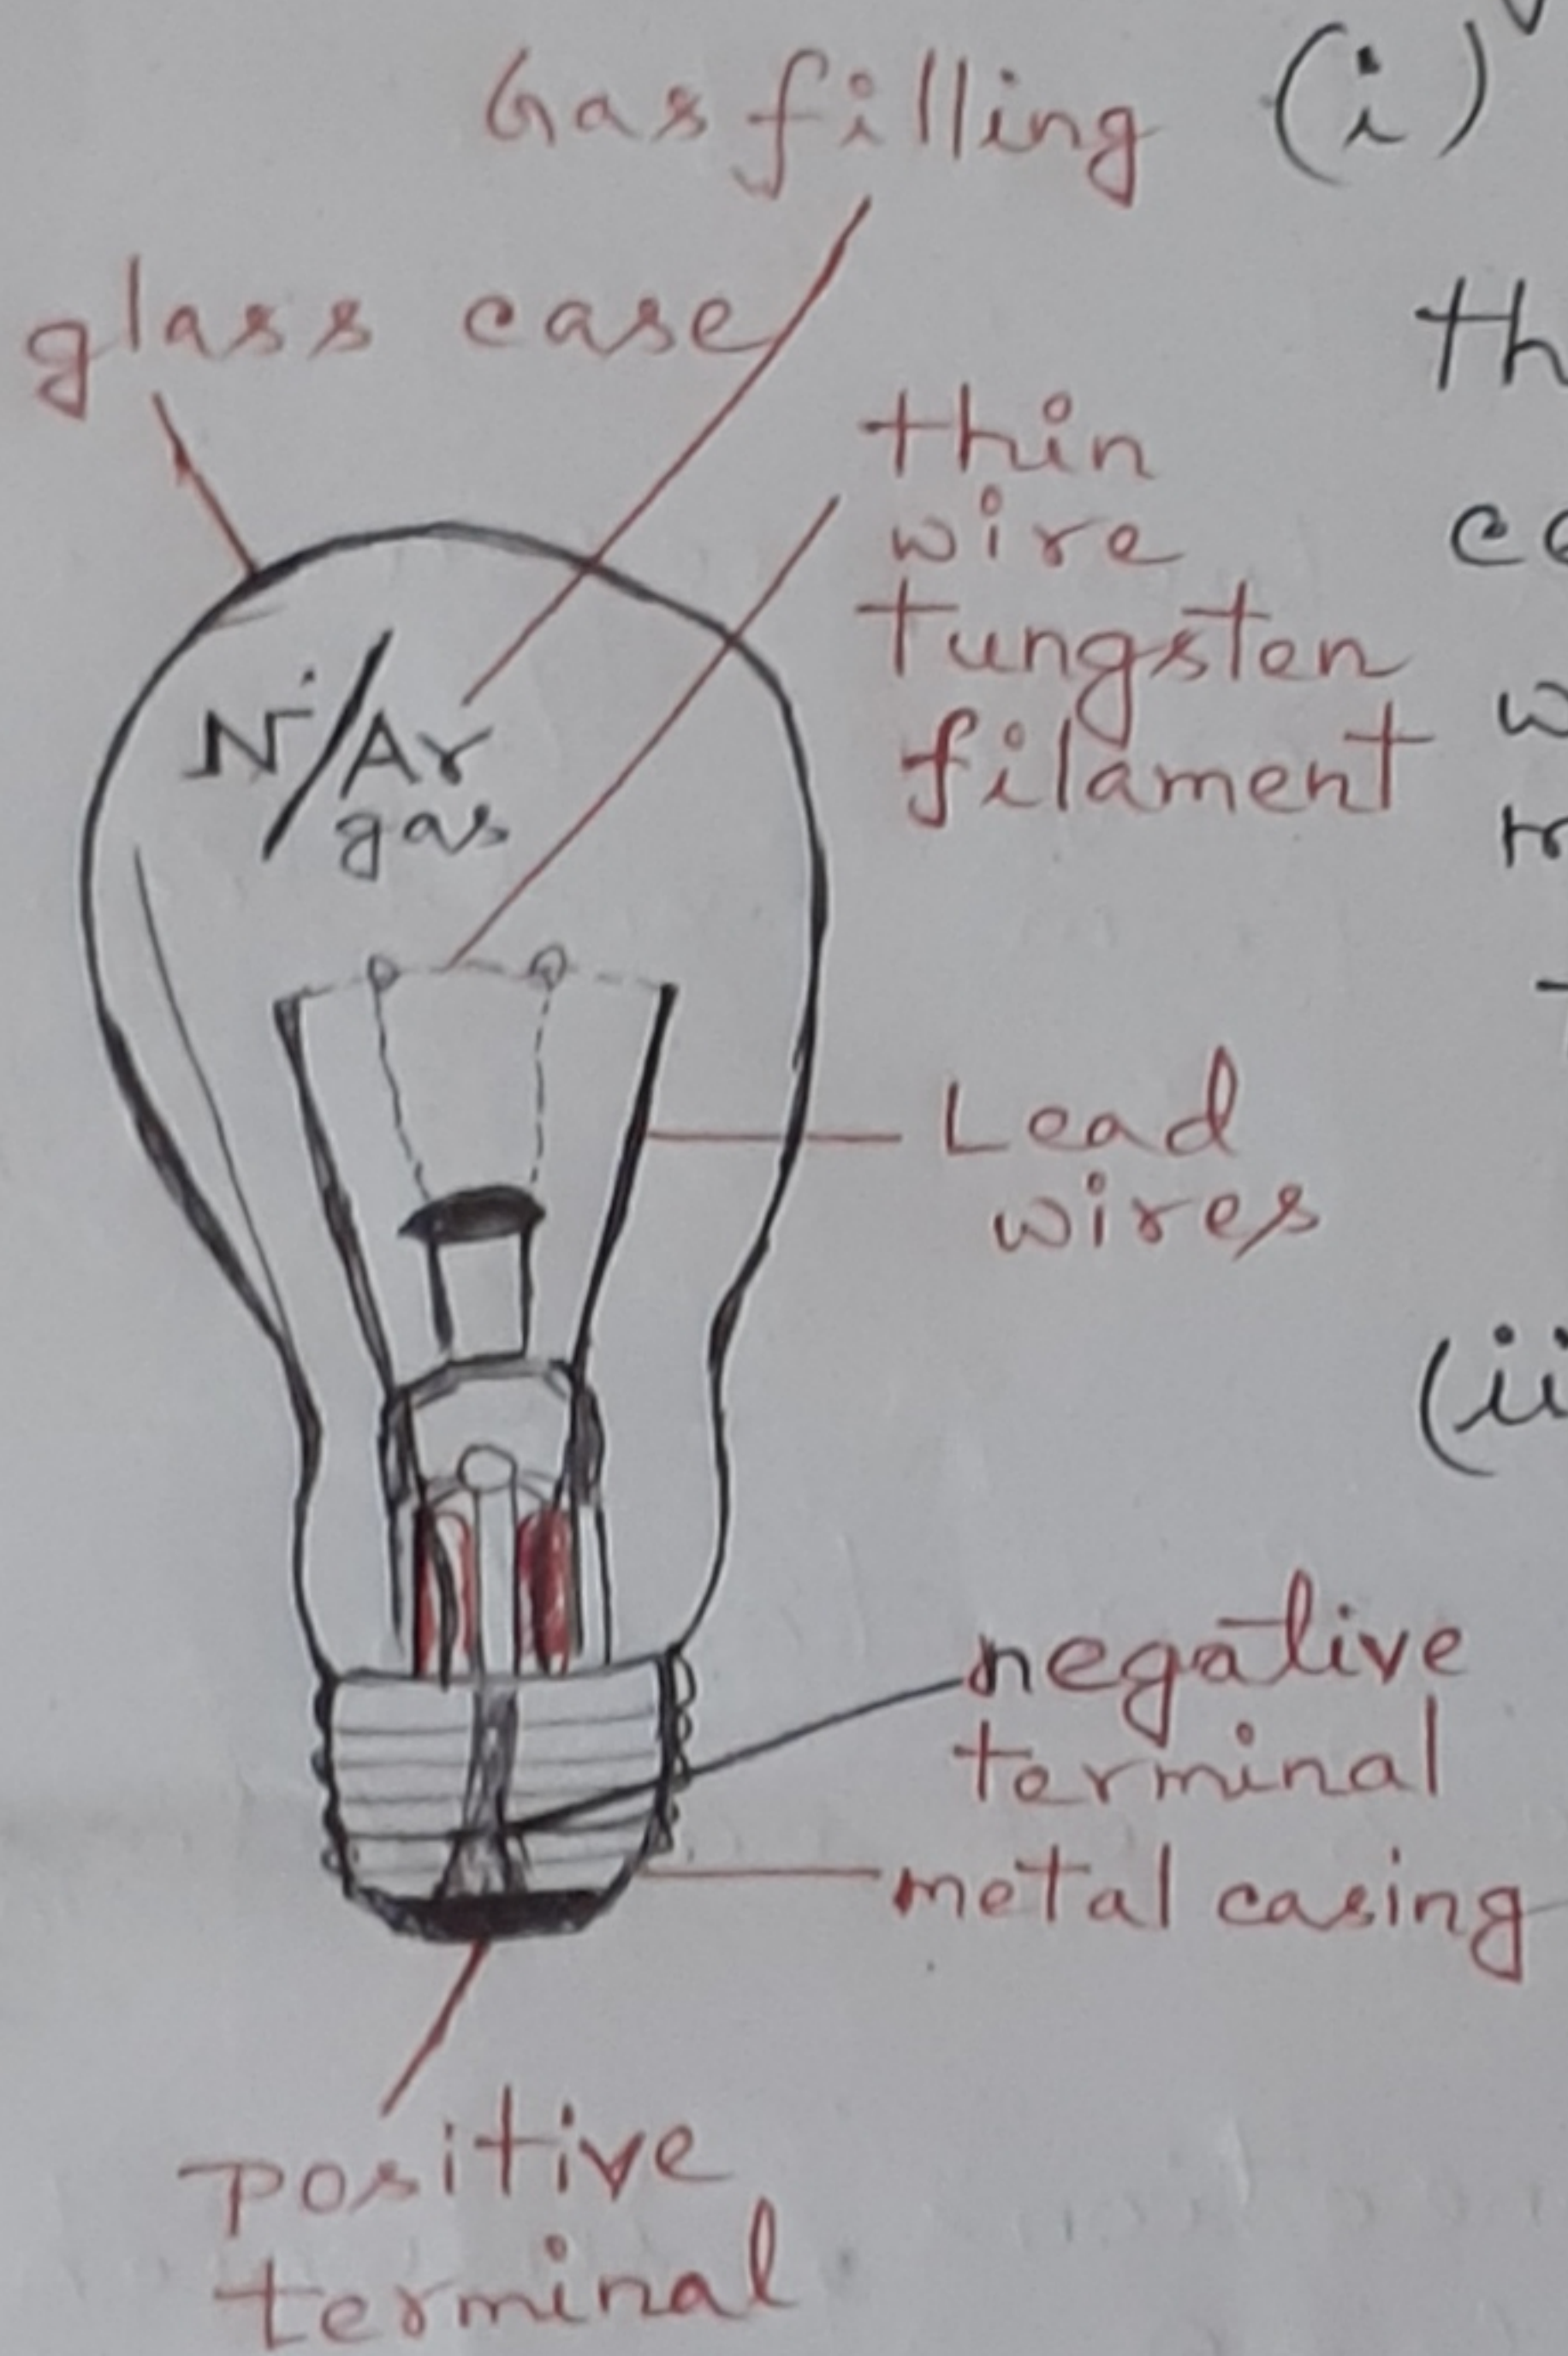 Gas filling (i)
glass case
thin
wire
tungsten
filament
N/Ar
gas
Lead
wires
negative
terminal
metal casing
positive
terminal